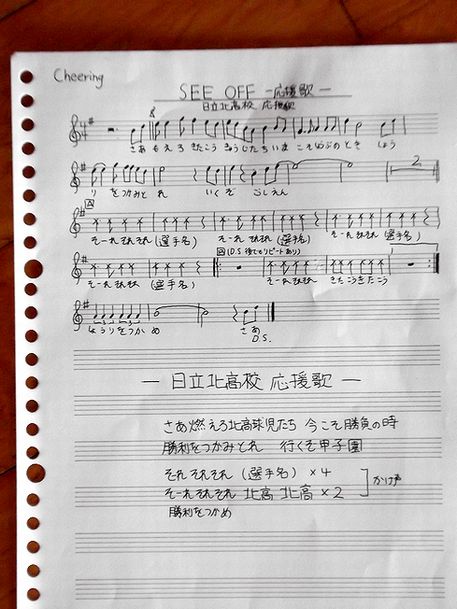 Cheering
SEE OFF －応援歌－
日立北高校 応援歌
さあ もえろ きたこう きゅうじたち いま こそしょうぶの とき しょう
2
り をつかみと れ いくぞ こうしえん
A
そーれ それそれ (選手名) そーれ それそれ (選手名) そーれ それそれ (選手名)
B (D.S.後でもリピートあり)
そーれ それそれ (選手名) そーれ それそれ きたこうきたこう
しょうりをつかめ さあ
D.S.
－ 日立北高校 応援歌 －
さあ燃えろ北高球児たち 今こそ勝負の時
勝利をつかみとれ 行くぞ甲子園
それ それそれ (選手名) ×4
そーれ それそれ 北高 北高 ×2 かけ声
勝利をつかめ